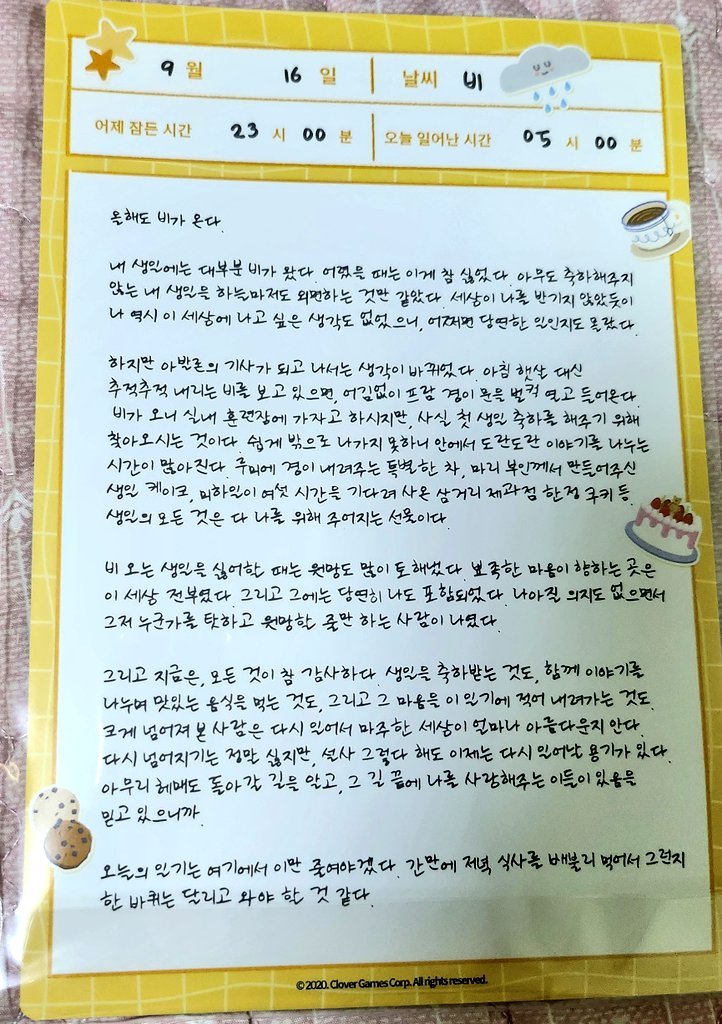 9 월 16 일 날씨 비
어제 잠든 시간 23 시 00 분 오늘 일어난 시간 05 시 00 분
올해도 비가 온다.
내 생일에는 대부분 비가 왔다. 어렸을 때는 이게 참 싫었다. 아무도 축하해주지
않는 내 생일을 하늘마저도 외면하는 것만 같았다. 세상이 나를 반기지 않았듯이
나 역시 이 세상에 나고 싶은 생각도 없었으니, 어쩌면 당연한 일인지도 몰랐다.
하지만 아발론의 기사가 되고 나서는 생각이 바뀌었다. 아침 햇살 대신
추적추적 내리는 비를 보고 있으면, 어김없이 프람 경이 문을 벌컥 열고 들어온다.
비가 오니 실내 훈련장에 가자고 하시지만, 사실 첫 생일 축하를 해주기 위해
찾아오시는 것이다. 쉽게 밖으로 나가지 못하니 안에서 도란도란 이야기를 나누는
시간이 많아진다. 루미에 경이 내려주는 특별한 차, 마리 부인께서 만들어주신
생일 케이크, 미하일이 여섯 시간을 기다려 사온 삼거리 제과점 한정 쿠키 등.
생일의 모든 것은 다 나를 위해 주어지는 선물이다.
비 오는 생일을 싫어한 때는 원망도 많이 토해냈다. 뾰족한 마음이 향하는 곳은
이 세상 전부였다. 그리고 그에는 당연히 나도 포함되었다. 나아질 의지도 없으면서
그저 누군가를 탓하고 원망할 줄만 하는 사람이 나였다.
그리고 지금은, 모든 것이 참 감사하다. 생일을 축하받는 것도, 함께 이야기를
나누며 맛있는 음식을 먹는 것도, 그리고 그 마음을 이 일기에 적어 내려가는 것도.
크게 넘어져 본 사람은 다시 일어서 마주한 세상이 얼마나 아름다운지 안다.
다시 넘어지기는 정말 싫지만, 설사 그렇다 해도 이제는 다시 일어날 용기가 있다.
아무리 헤매도 돌아갈 길을 알고, 그 길 끝에 나를 사랑해주는 이들이 있음을
믿고 있으니까.
오늘의 일기는 여기에서 이만 줄여야겠다. 간만에 저녁 식사를 배불리 먹어서 그런지
한 바퀴는 달리고 와야 할 것 같다.
© 2020. Clover Games Corp. All rights reserved.